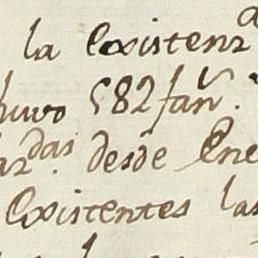 la Existenz.ª
huvo 582 fan.ˢ
das desde Ene
Existentes las